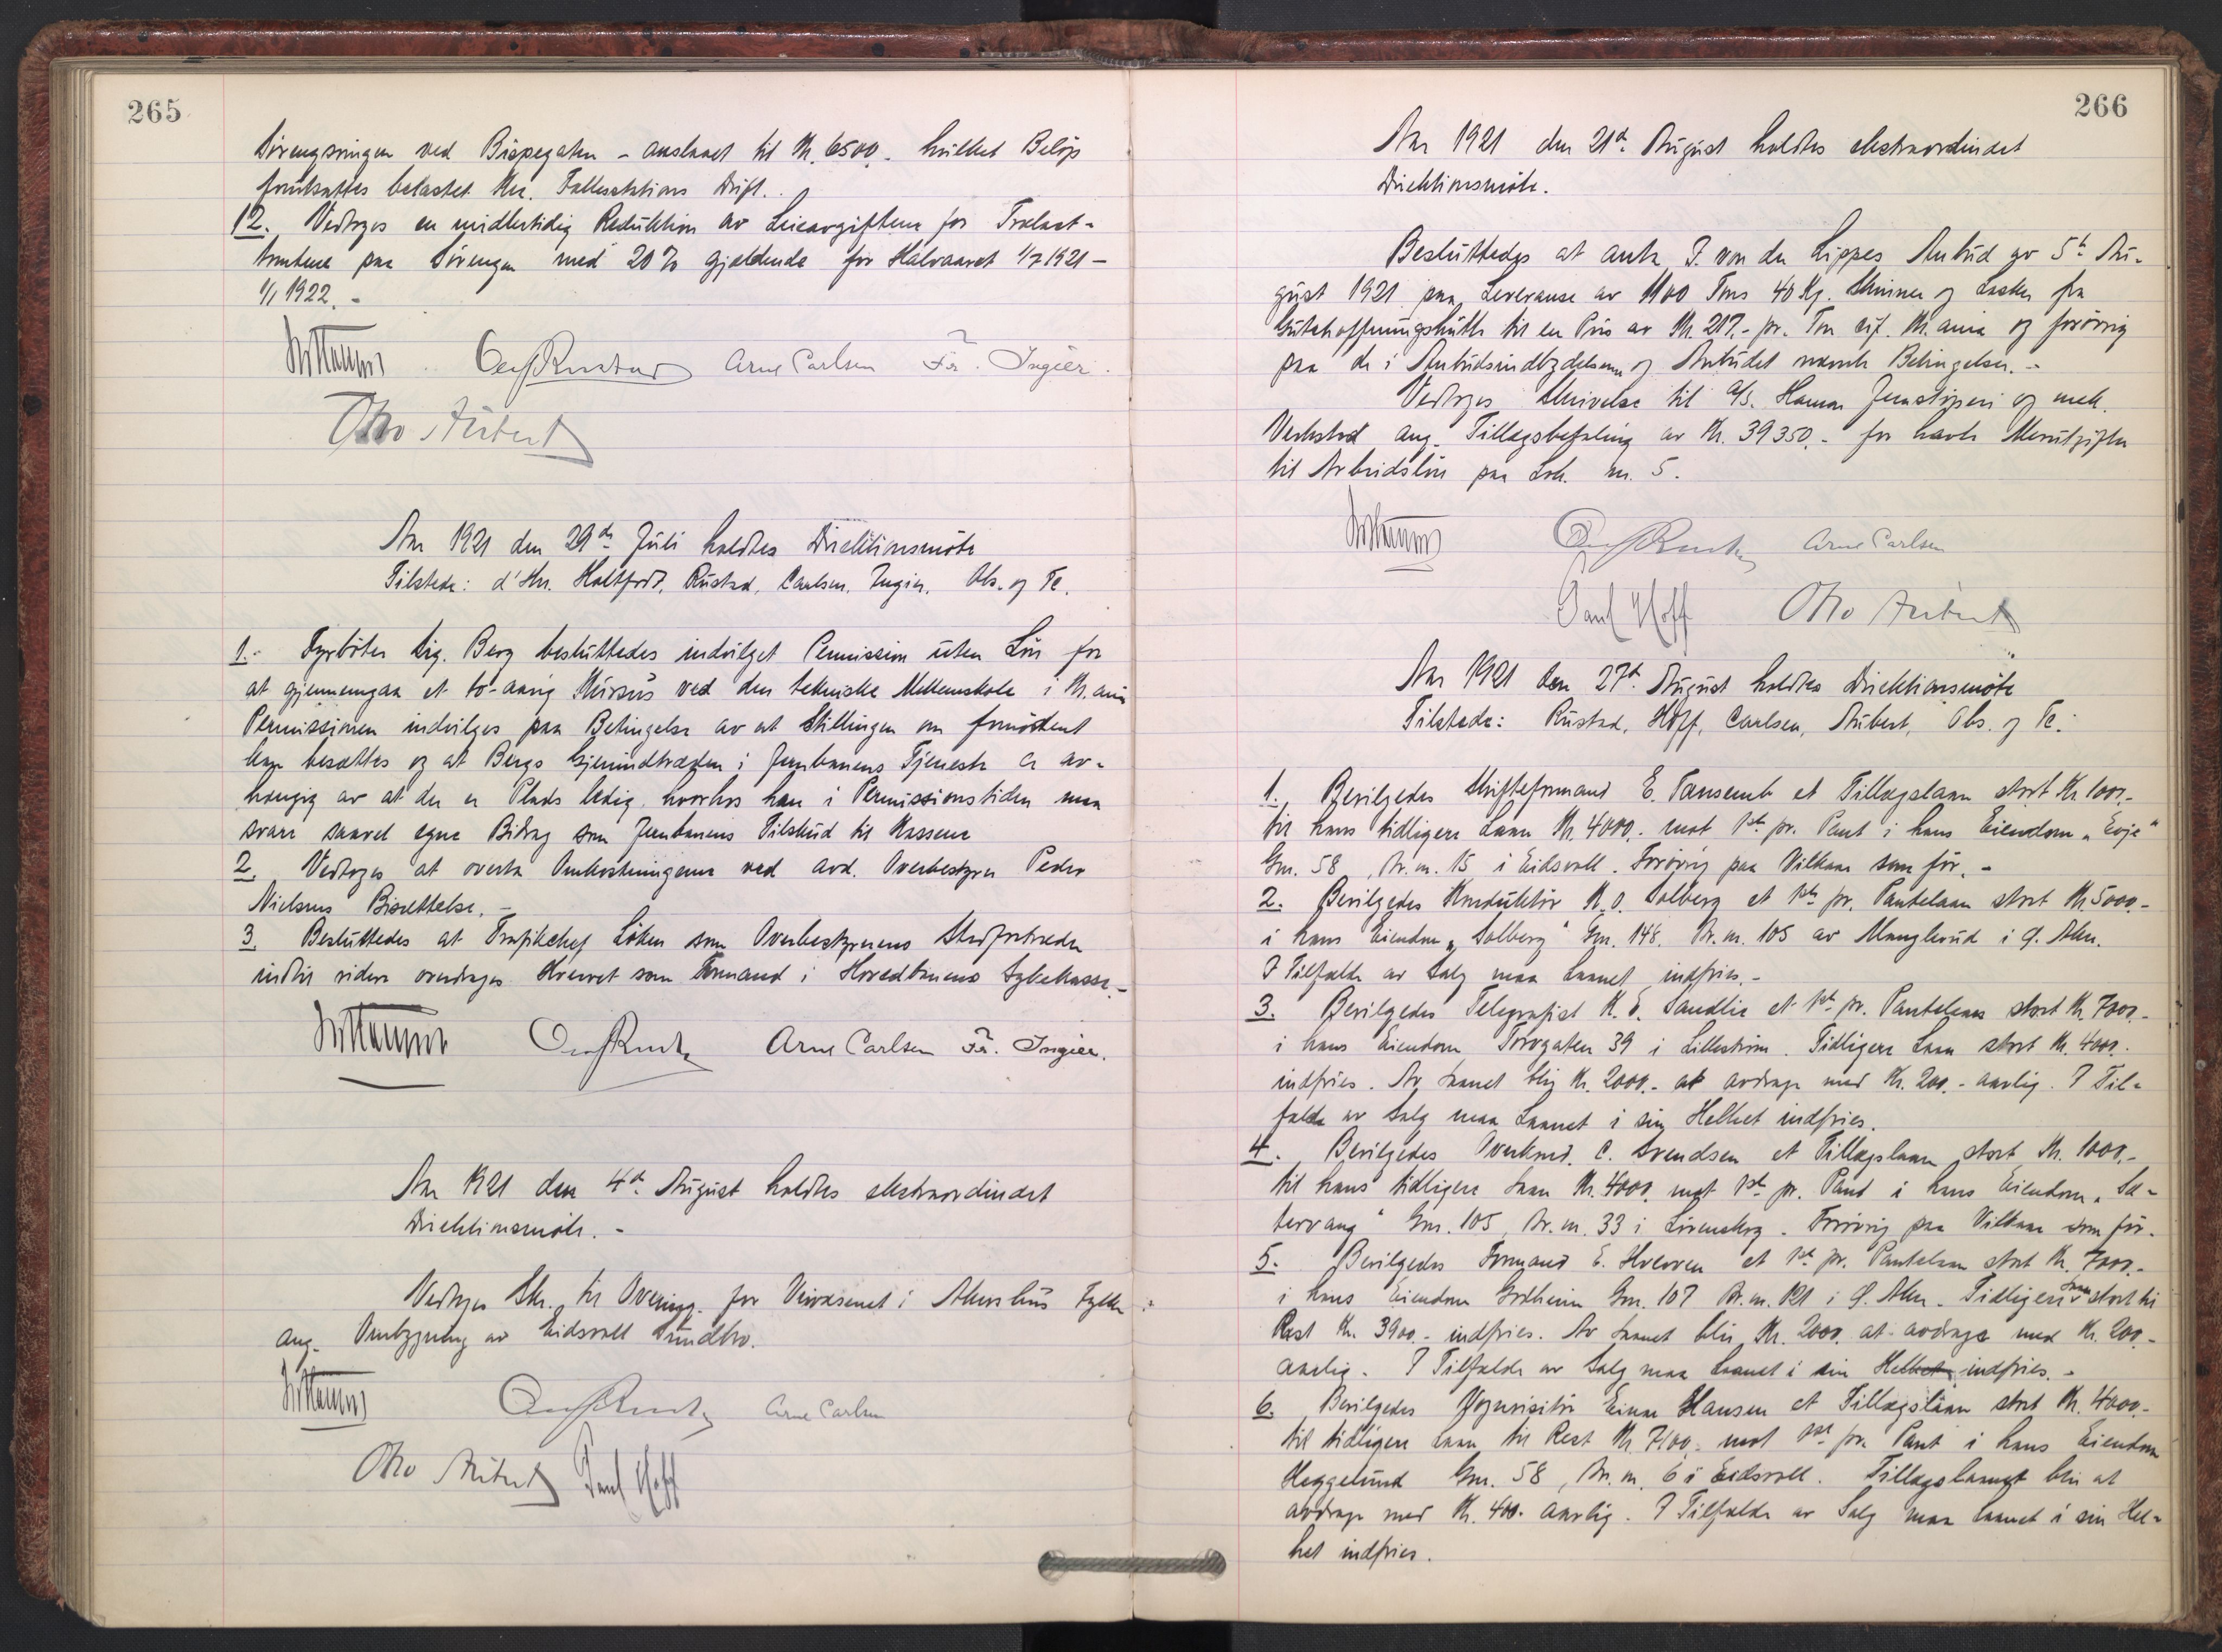 265
Sørengsvingen ved Bispegaten - anslaaet til Kr. 6500.- hvilket Beløp
forutsattes belastet Kra. Fællesstations Drift.
12. Vedtoges en midlertidig Reduktion av Leieavgiftene for Trælast-
tomtene paa Sørengen med 20% gjældende for Halvaaret 1/7 1921 -
1/1 1922. -
Arne Carlsen Fr. Ingier.
Otto Aubert
Aar 1921 den 29de Juli holdtes Direktionsmöte
Tilstede: d'Hrr. Holtfodt, Rustad, Carlsen, Ingier, Obs. og Tc.
1. Fyrböter Sig. Berg besluttedes indvilget Permission uten Lön for
at gjennemgaa et to-aarig Kursus ved den tekniske Mellemskole i Kr.ania
Permissionen indvilges paa Betingelse av at Stillingen om fornödent
kan besættes og at Bergs Gjenindtræden i Jernbanens Tjeneste er av-
hængig av at der er Plads ledig, hvorhos han i Permissionstiden maa
svare saavel egne Bidrag som Jernbanens Tilskud til Kassene
2. Vedtoges at overta Omkostningerne ved avd. Overbestyrer Peder
Nielsens Bisættelse. -
3. Besluttedes at Trafikchef Löken som Overbestyrerens Stedfortræder
indtil videre overdrages Hvervet som Formand i Hovedbanens Sykekasse. -
Arne Carlsen Fr. Ingier.
Aar 1921 den 4de August holdtes ekstraordinært
Direktionsmöte. -
Vedtoges Skr. til Overing. for Veivæsenet i Akershus Fylke
ang. Ombygning av Eidsvoll Sundbro.
Arne Carlsen
Otto Aubert Paul Hoff
266
Aar 1921 den 21de August holdtes ekstraordinært
Direktionsmöte.
Besluttedes at anta J. von der Lippes Anbud av 5te Au-
gust 1921 paa Leveranse av 1100 Tons 40 Kg. Skinner og Lasker fra
Gutehoffnungshütte til en Pris av Kr. 217.- pr. Ton cif. Kr.ania og forövrig
paa de i Anbudsindbydelsen og Anbudet nævnte Betingelser. -
Vedtoges Skrivelse til A/S. Hamar Jernstöperi og mek.
Verksted ang. Tillægsbetaling av Kr. 39350.- for havte Merutgifter
til Arbeidslön paa Lok. nr. 5.
Arne Carlsen
Paul Hoff Otto Aubert
Aar 1921 den 27de August holdtes Direktionsmöte
Tilstede: Rustad, Hoff, Carlsen, Aubert, Obs. og Tc.
1. Bevilgedes Skifteformand E. et Tillægslaan stort Kr. 1000,-
til hans tidligere Laan Kr. 4000.- mot 1ste pr. Pant i hans Eiendom "Evje"
Gnr. 58, Br.nr. 15 i Eidsvoll. Forövrig paa Vilkaar som för. -
2. Bevilgedes Konduktör K.O. Solberg et 1ste pr. Pantelaan stort Kr. 5000.-
i hans Eiendom "Solberg" Gnr. 148, Br.nr. 105 av Manglerud i Ö. Aker.
I Tilfælde av Salg maa Laanet indfries. -
3. Bevilgedes Telegrafist K.E. Sandlie et 1ste pr. Pantelaan stort Kr. 7000.-
i hans Eiendom Torvgaten 39 i Lilleström. Tidligere Laan stort Kr. 4000.-
indfries. Av Laanet blir Kr. 2000.- at avdrage med Kr. 200.- aarlig. I Til-
fælde av Salg maa Laanet i sin Helhet indfries.
4. Bevilgedes Overkond. C. Svendsen et Tillægslaan stort Kr. 1000.-
til hans tidligere Laan Kr. 4000.- mot 1ste pr. Pant i hans Eiendom "Sæ-
tervang" Gnr. 105, Br.nr. 33 i Lörenskog. Forövrig paa Vilkaar som för.
5. Bevilgedes Formand E. Hverven et 1ste pr. Pantelaan stort Kr. 7000.-
i hans Eiendom Gnr. 107 Br.nr. 121 i Ö. Aker. Tidligere Laan stort til
Rest Kr. 3900.- indfries. Av Laanet blir Kr. 2000.- at avdrage med Kr. 200.-
aarlig. I Tilfælde av Salg maa Laanet i sin Helhet indfries. -
6. Bevilgedes Vognvisitör Einar Hansen et Tillægslaan stort Kr. 4000.-
til tidligere Laan til Rest Kr. 7100.- mot 1ste pr. Pant i hans Eiendom
Heggelund Gnr. 58, Br.nr. 6 i Eidsvoll. Tillægslaanet blir at
avdrage med Kr. 400.- aarlig. I Tilfælde av Salg maa Laanet i sin Hel-
het indfries.